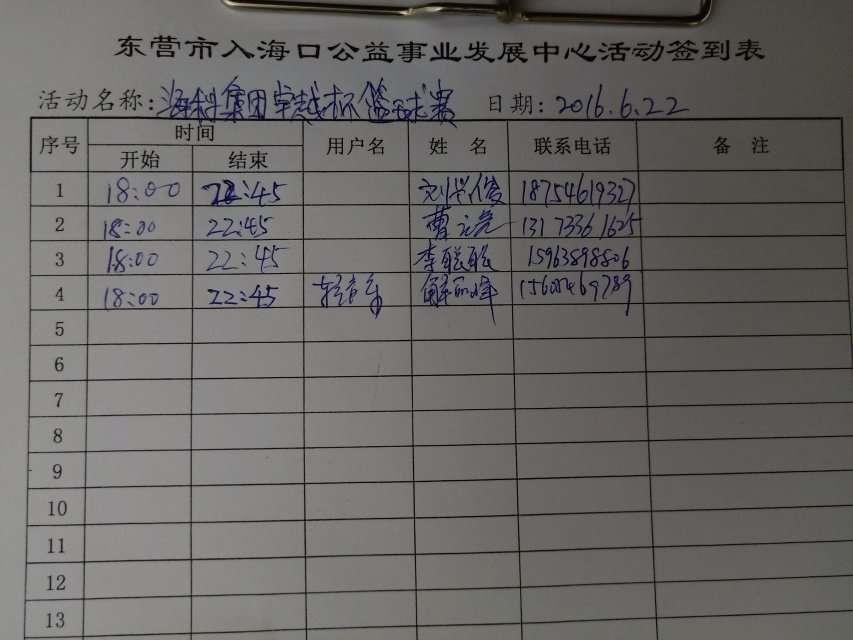 东营市入海口公益事业发展中心活动签到表
活动名称:海科集团卓越杯篮球赛 日期:2016.6.22
序号 时间 用户名 姓名 联系电话 备注
开始 结束
1 18:00 22:45 18754619327
2 18:00 22:45 曹 13173361625
3 18:00 22:45 李聪聪 15963898806
4 18:00 22:45 解丽峰
5
6
7
8
9
10
11
12
13